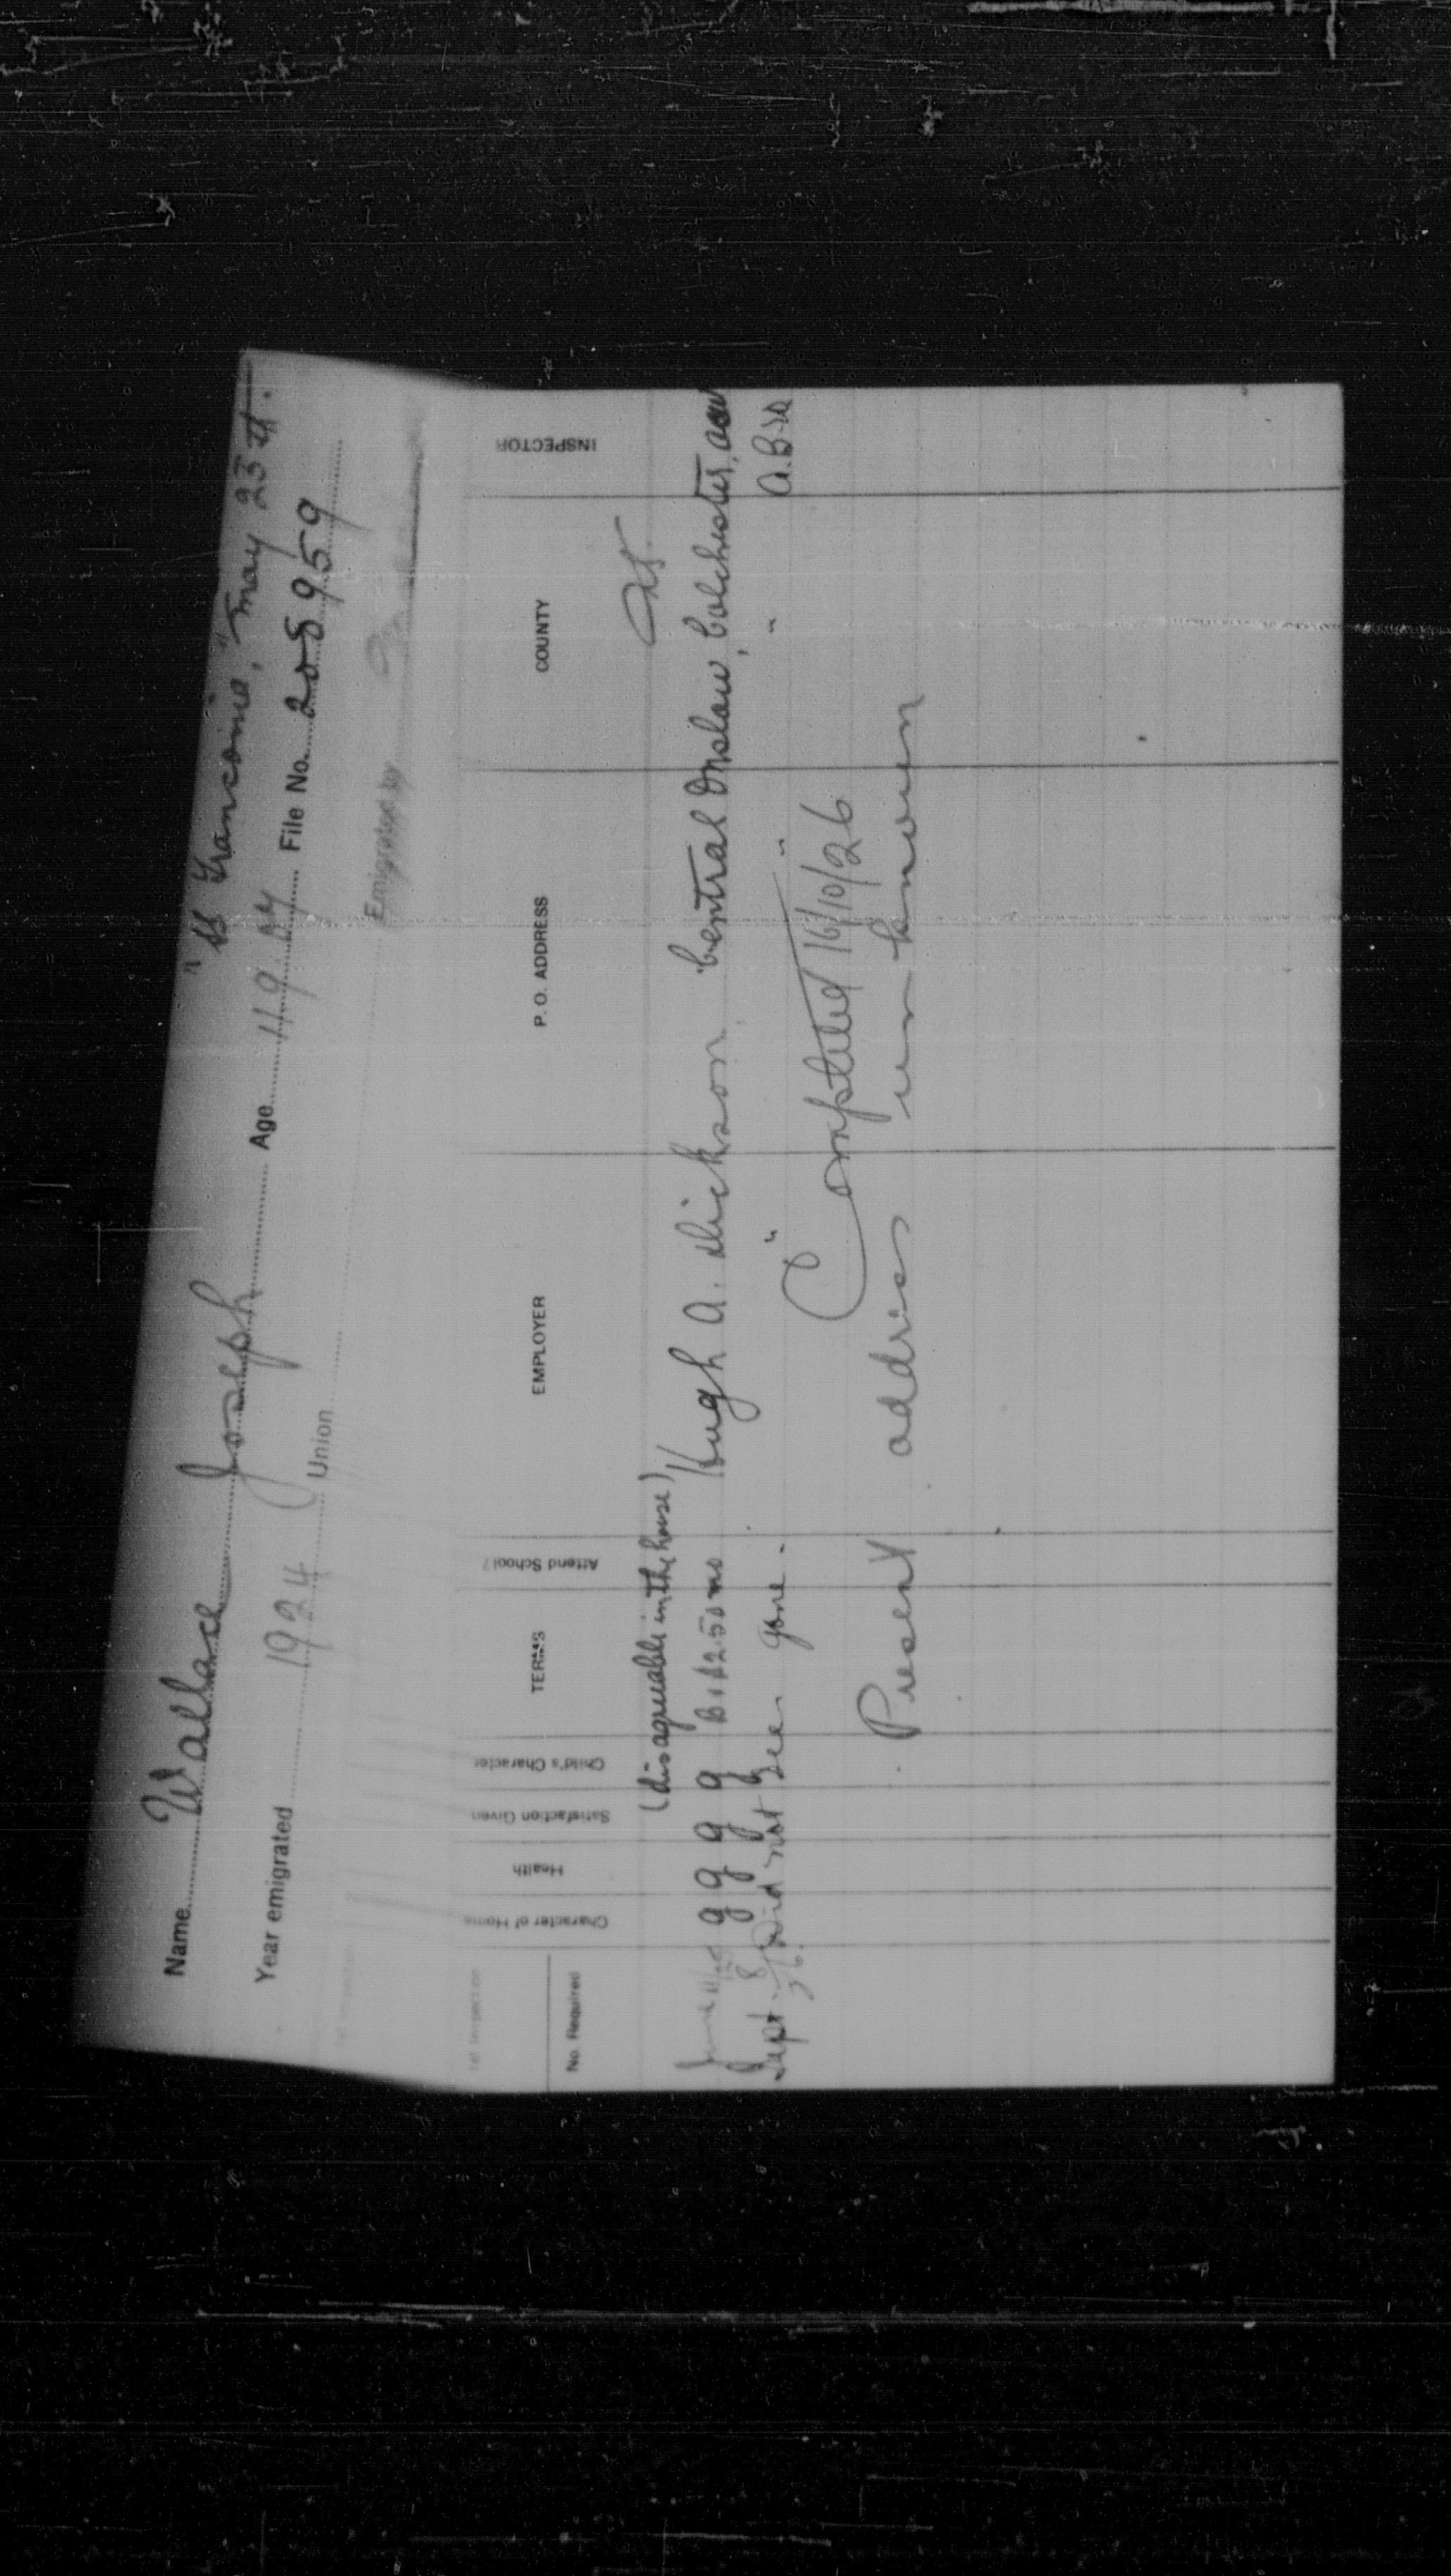 "SS Franconia," May 25th.
Name Wallace Joseph Age 11 9 File No. 208959
Year emigrated 1924 Union
Emigrated by
1st Inspection
No. Required
Character of Home
Health
Satisfaction Given
Child's Character
TERMS
Attend School?
EMPLOYER
P. O. ADDRESS
COUNTY
INSPECTOR
(disagreeable in the house)
June g g g g B + $2.50 mo Hugh A. Dickson Central Onslow, Colchester,
Sept. 8/26 Did not see gone. " " " A.B.
Completed 16/10/26
Present address unknown